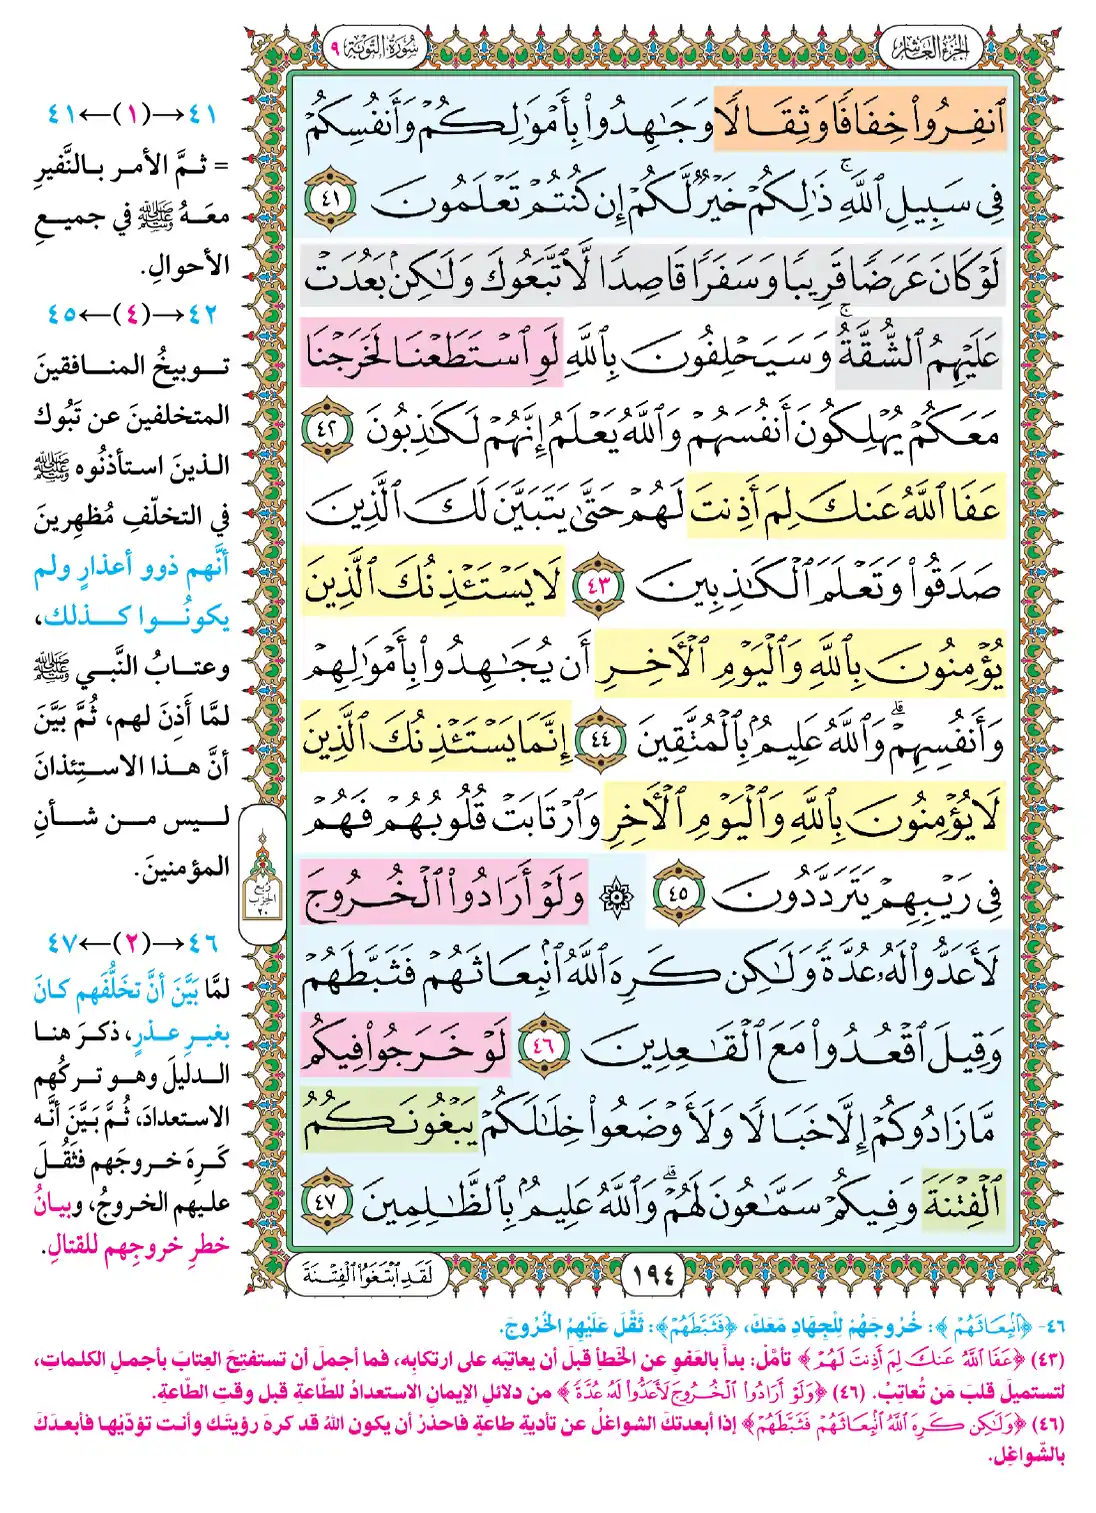 الجزء العاشر
سورة التوبة ٩
ٱنفِرُوا۟ خِفَافًا وَثِقَالًا وَجَـٰهِدُوا۟ بِأَمْوَٰلِكُمْ وَأَنفُسِكُمْ
فِى سَبِيلِ ٱللَّهِ ۚ ذَٰلِكُمْ خَيْرٌ لَّكُمْ إِن كُنتُمْ تَعْلَمُونَ ٤١
لَوْ كَانَ عَرَضًا قَرِيبًا وَسَفَرًا قَاصِدًا لَّٱتَّبَعُوكَ وَلَـٰكِنۢ بَعُدَتْ
عَلَيْهِمُ ٱلشُّقَّةُ ۚ وَسَيَحْلِفُونَ بِٱللَّهِ لَوِ ٱسْتَطَعْنَا لَخَرَجْنَا
مَعَكُمْ يُهْلِكُونَ أَنفُسَهُمْ وَٱللَّهُ يَعْلَمُ إِنَّهُمْ لَكَـٰذِبُونَ ٤٢
عَفَا ٱللَّهُ عَنكَ لِمَ أَذِنتَ لَهُمْ حَتَّىٰ يَتَبَيَّنَ لَكَ ٱلَّذِينَ
صَدَقُوا۟ وَتَعْلَمَ ٱلْكَـٰذِبِينَ ٤٣ لَا يَسْتَـْٔذِنُكَ ٱلَّذِينَ
يُؤْمِنُونَ بِٱللَّهِ وَٱلْيَوْمِ ٱلْـَٔاخِرِ أَن يُجَـٰهِدُوا۟ بِأَمْوَٰلِهِمْ
وَأَنفُسِهِمْ ۗ وَٱللَّهُ عَلِيمٌۢ بِٱلْمُتَّقِينَ ٤٤ إِنَّمَا يَسْتَـْٔذِنُكَ ٱلَّذِينَ
لَا يُؤْمِنُونَ بِٱللَّهِ وَٱلْيَوْمِ ٱلْـَٔاخِرِ وَٱرْتَابَتْ قُلُوبُهُمْ فَهُمْ
فِى رَيْبِهِمْ يَتَرَدَّدُونَ ٤٥ ۞ وَلَوْ أَرَادُوا۟ ٱلْخُرُوجَ
لَأَعَدُّوا۟ لَهُۥ عُدَّةً وَلَـٰكِن كَرِهَ ٱللَّهُ ٱنۢبِعَاثَهُمْ فَثَبَّطَهُمْ
وَقِيلَ ٱقْعُدُوا۟ مَعَ ٱلْقَـٰعِدِينَ ٤٦ لَوْ خَرَجُوا۟ فِيكُم
مَّا زَادُوكُمْ إِلَّا خَبَالًا وَلَأَوْضَعُوا۟ خِلَـٰلَكُمْ يَبْغُونَكُمُ
ٱلْفِتْنَةَ وَفِيكُمْ سَمَّـٰعُونَ لَهُمْ ۗ وَٱللَّهُ عَلِيمٌۢ بِٱلظَّـٰلِمِينَ ٤٧
١٩٤
لَقَدِ ٱبْتَغَوُا۟ ٱلْفِتْنَةَ
ربع
الحزب
٢٠
٤١→(١)←٤١
= ثمَّ الأمر بالنَّفيرِ
معَهُ ﷺ في جميعِ
الأحوالِ.
٤٢→(٤)←٤٥
توبيخُ المنافقينَ
المتخلفينَ عن تَبُوك
الذينَ استأذنُوه ﷺ
في التخلّفِ مُظهِرينَ
أنَّهم ذوو أعذارٍ ولم
يكونُوا كذلك،
وعتابُ النَّبي ﷺ
لمَّا أَذِنَ لهم، ثُمَّ بَيَّنَ
أنَّ هذا الاستِئذانَ
ليس من شأنِ
المؤمنينَ.
٤٦→(٢)←٤٧
لمَّا بَيَّنَ أنَّ تخَلُّفَهم كانَ
بغيرِ عذرٍ، ذكرَ هنا
الدليلَ وهو تركُهم
الاستعدادَ، ثُمَّ بَيَّنَ أنَّه
كَرِهَ خروجَهم فثَقُلَ
عليهم الخروجُ، وبيانُ
خطرِ خروجِهم للقتالِ.
٤٦- ﴿ٱنۢبِعَاثَهُمْ﴾: خُرُوجَهُمْ لِلْجِهَادِ مَعَكَ، ﴿فَثَبَّطَهُمْ﴾: ثَقَّلَ عَلَيْهِمُ الخُرُوجَ.
(٤٣) ﴿عَفَا ٱللَّهُ عَنكَ لِمَ أَذِنتَ لَهُمْ﴾ تأمَّلْ: بدأَ بالعَفوِ عن الخَطأِ قبلَ أن يعاتِبَه على ارتكابِه، فما أجملَ أن تستفتِحَ العِتابَ بأجملِ الكلماتِ،
لتستميلَ قلبَ مَن تُعاتِبُ. (٤٦) ﴿وَلَوْ أَرَادُوا۟ ٱلْخُرُوجَ لَأَعَدُّوا۟ لَهُۥ عُدَّةً﴾ من دلائلِ الإيمانِ الاستعدادُ للطَّاعةِ قبلَ وقتِ الطَّاعةِ.
(٤٦) ﴿وَلَـٰكِن كَرِهَ ٱللَّهُ ٱنۢبِعَاثَهُمْ فَثَبَّطَهُمْ﴾ إذا أبعدتكَ الشواغلُ عن تأديةِ طاعةٍ فاحذرْ أن يكون اللهُ قد كرهَ رؤيتَك وأنت تؤدّيْها فأبعدكَ
بالشّواغِلِ.